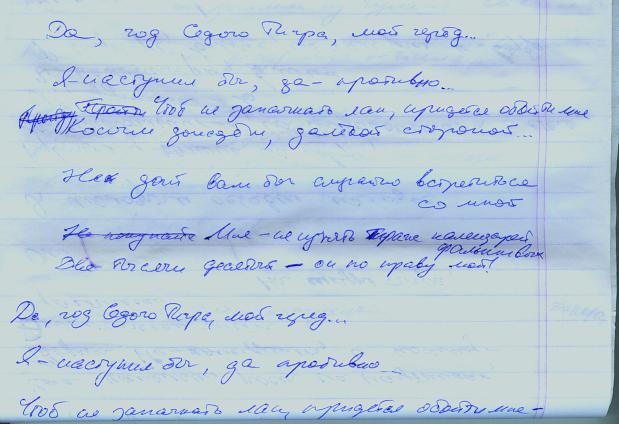 Да, год Седого Тигра, мой черёд...
Я-наступил бы, да-противно...
Чтоб не запачкать лап, придётся обойти мне
Косыми дождями, далёкой стороной...
Не дай вам бог случайно встретиться
со мной
Не покупайте Мне-не нужно календарей
фальшивых
Две тысячи десятый - он по праву мой!
Да, год Седого Тигра, мой черёд...
Я-наступил бы, да противно...
Чтоб не запачкать лап, придётся обойти мне-